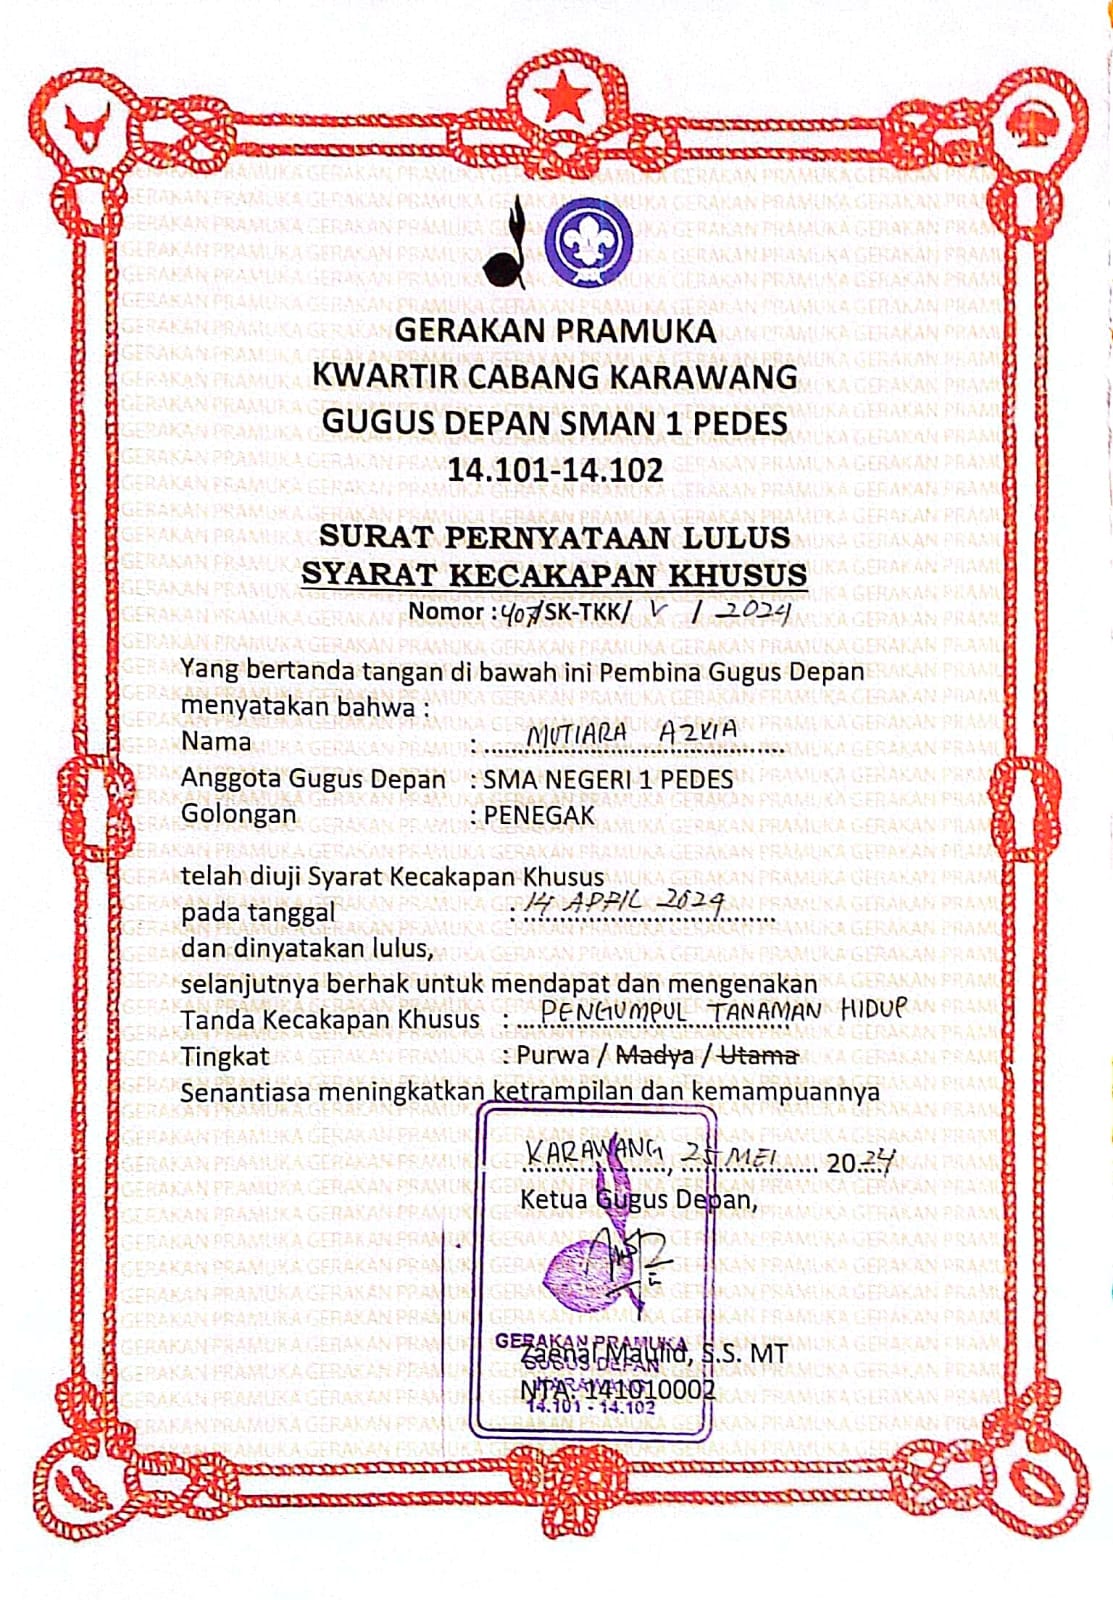 GERAKAN PRAMUKA
KWARTIR CABANG KARAWANG
GUGUS DEPAN SMAN 1 PEDES
14.101-14.102
SURAT PERNYATAAN LULUS
SYARAT KECAKAPAN KHUSUS
Nomor : 407/SK-TKK/ V / 2024
Yang bertanda tangan di bawah ini Pembina Gugus Depan
menyatakan bahwa :
Nama : MUTIARA AZKIA
Anggota Gugus Depan : SMA NEGERI 1 PEDES
Golongan : PENEGAK
telah diuji Syarat Kecakapan Khusus
pada tanggal : 14 APRIL 2024
dan dinyatakan lulus,
selanjutnya berhak untuk mendapat dan mengenakan
Tanda Kecakapan Khusus : PENGUMPUL TANAMAN HIDUP
Tingkat : Purwa / Madya / Utama
Senantiasa meningkatkan ketrampilan dan kemampuannya
KARAWANG, 25 MEI 2024
Ketua Gugus Depan,
GERAKAN PRAMUKA
Zaenal Maulid, S.S. MT
GUGUS DEPAN
KARAWANG
NTA. 141010002
14.101 - 14.102